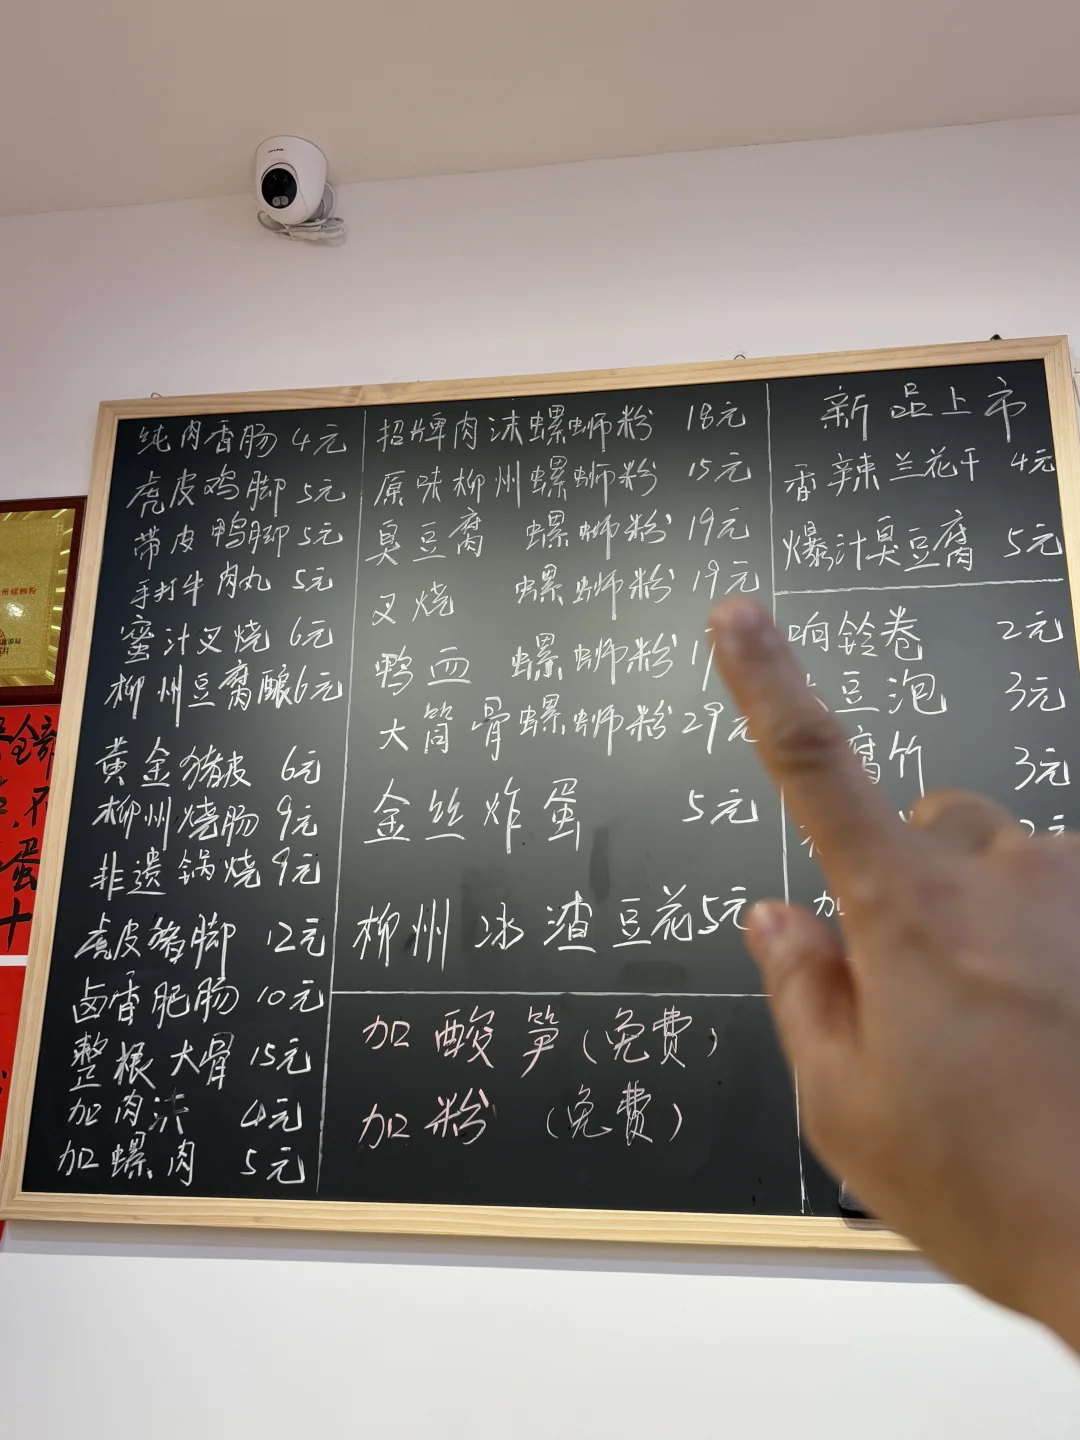 纯肉香肠 4元
虎皮鸡脚 5元
带皮鸭脚 5元
手打牛肉丸 5元
蜜汁叉烧 6元
柳州豆腐酿 6元
黄金猪皮 6元
柳州烧肠 9元
非遗锅烧 9元
虎皮猪脚 12元
卤香肥肠 10元
整根大骨 15元
加肉沫 4元
加螺肉 5元
招牌肉沫螺蛳粉 18元
原味柳州螺蛳粉 15元
臭豆腐 螺蛳粉 19元
叉烧 螺蛳粉 19元
鸭血 螺蛳粉
大筒骨螺蛳粉 29元
金丝炸蛋 5元
柳州冰渣豆花 5元
加酸笋(免费)
加粉 (免费)
新品上市
香辣兰花干 4元
爆汁臭豆腐 5元
响铃卷 2元
豆泡 3元
腐竹 3元
加